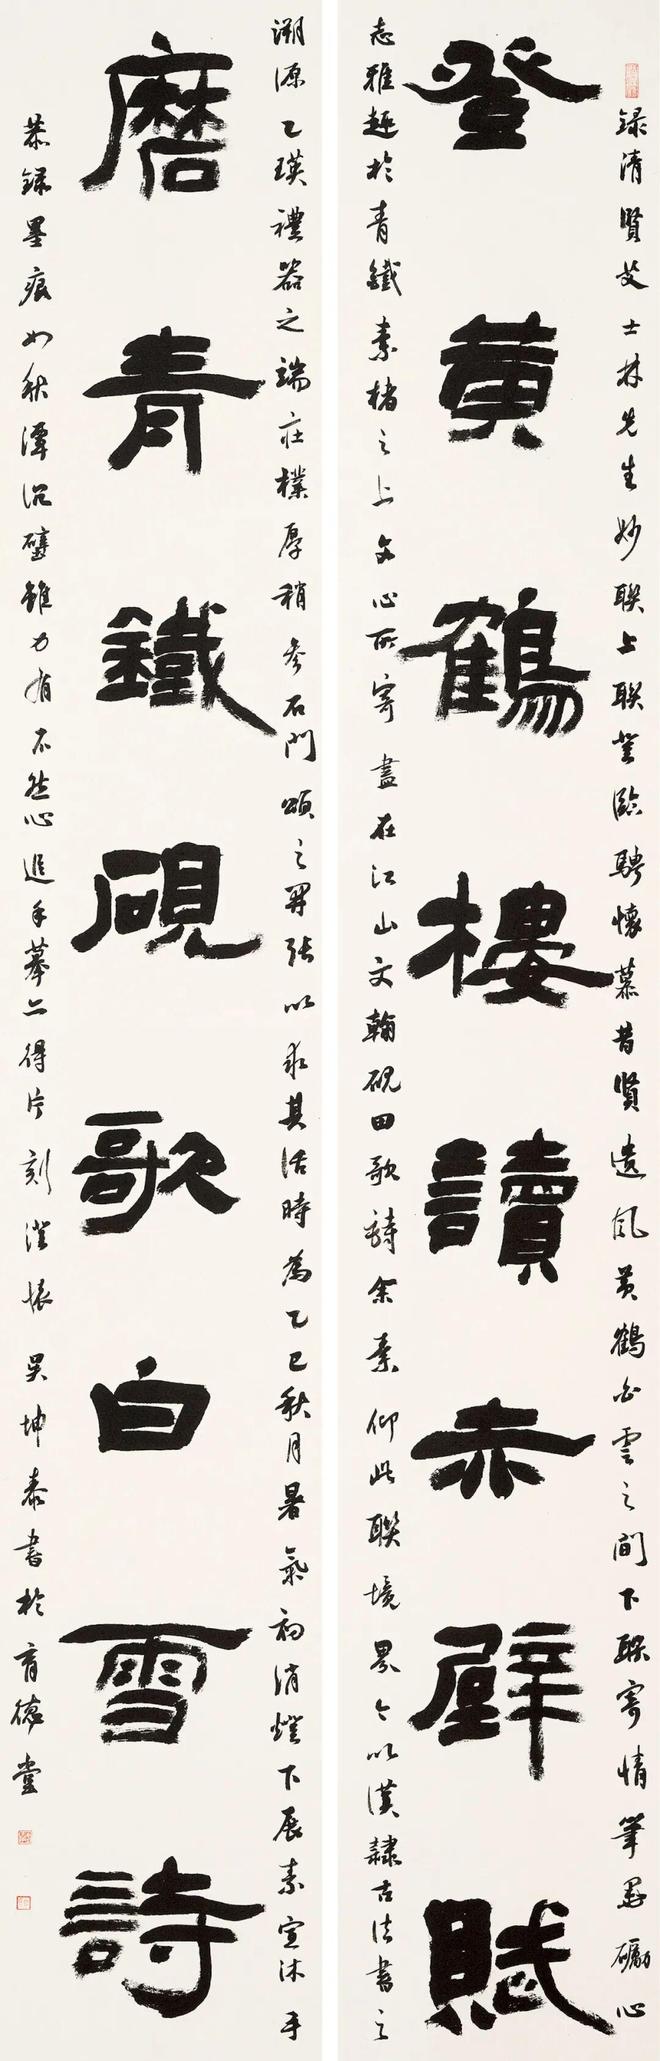 登黄鶴樓讀赤壁賦
磨青鐵硯歌白雪詩
録清賢艾士林先生妙联上联登臨騁懷慕昔賢遺風黄鶴白雲之间下联寄情筆墨礪心
志雅趣於青鐵素楮之上文心所寄盡在江山文翰硯田歌詩余素仰此联境界今以漢隸古法書之
溯源乙瑛禮器之端莊樸厚稍参石門頌之開张以求其活時為乙巳秋月暑氣初消燈下展素宣沐手
恭録墨痕如秋潭沉璧雖力有不逮心追手摹亦得片刻澄懷吴坤泰書於育德堂